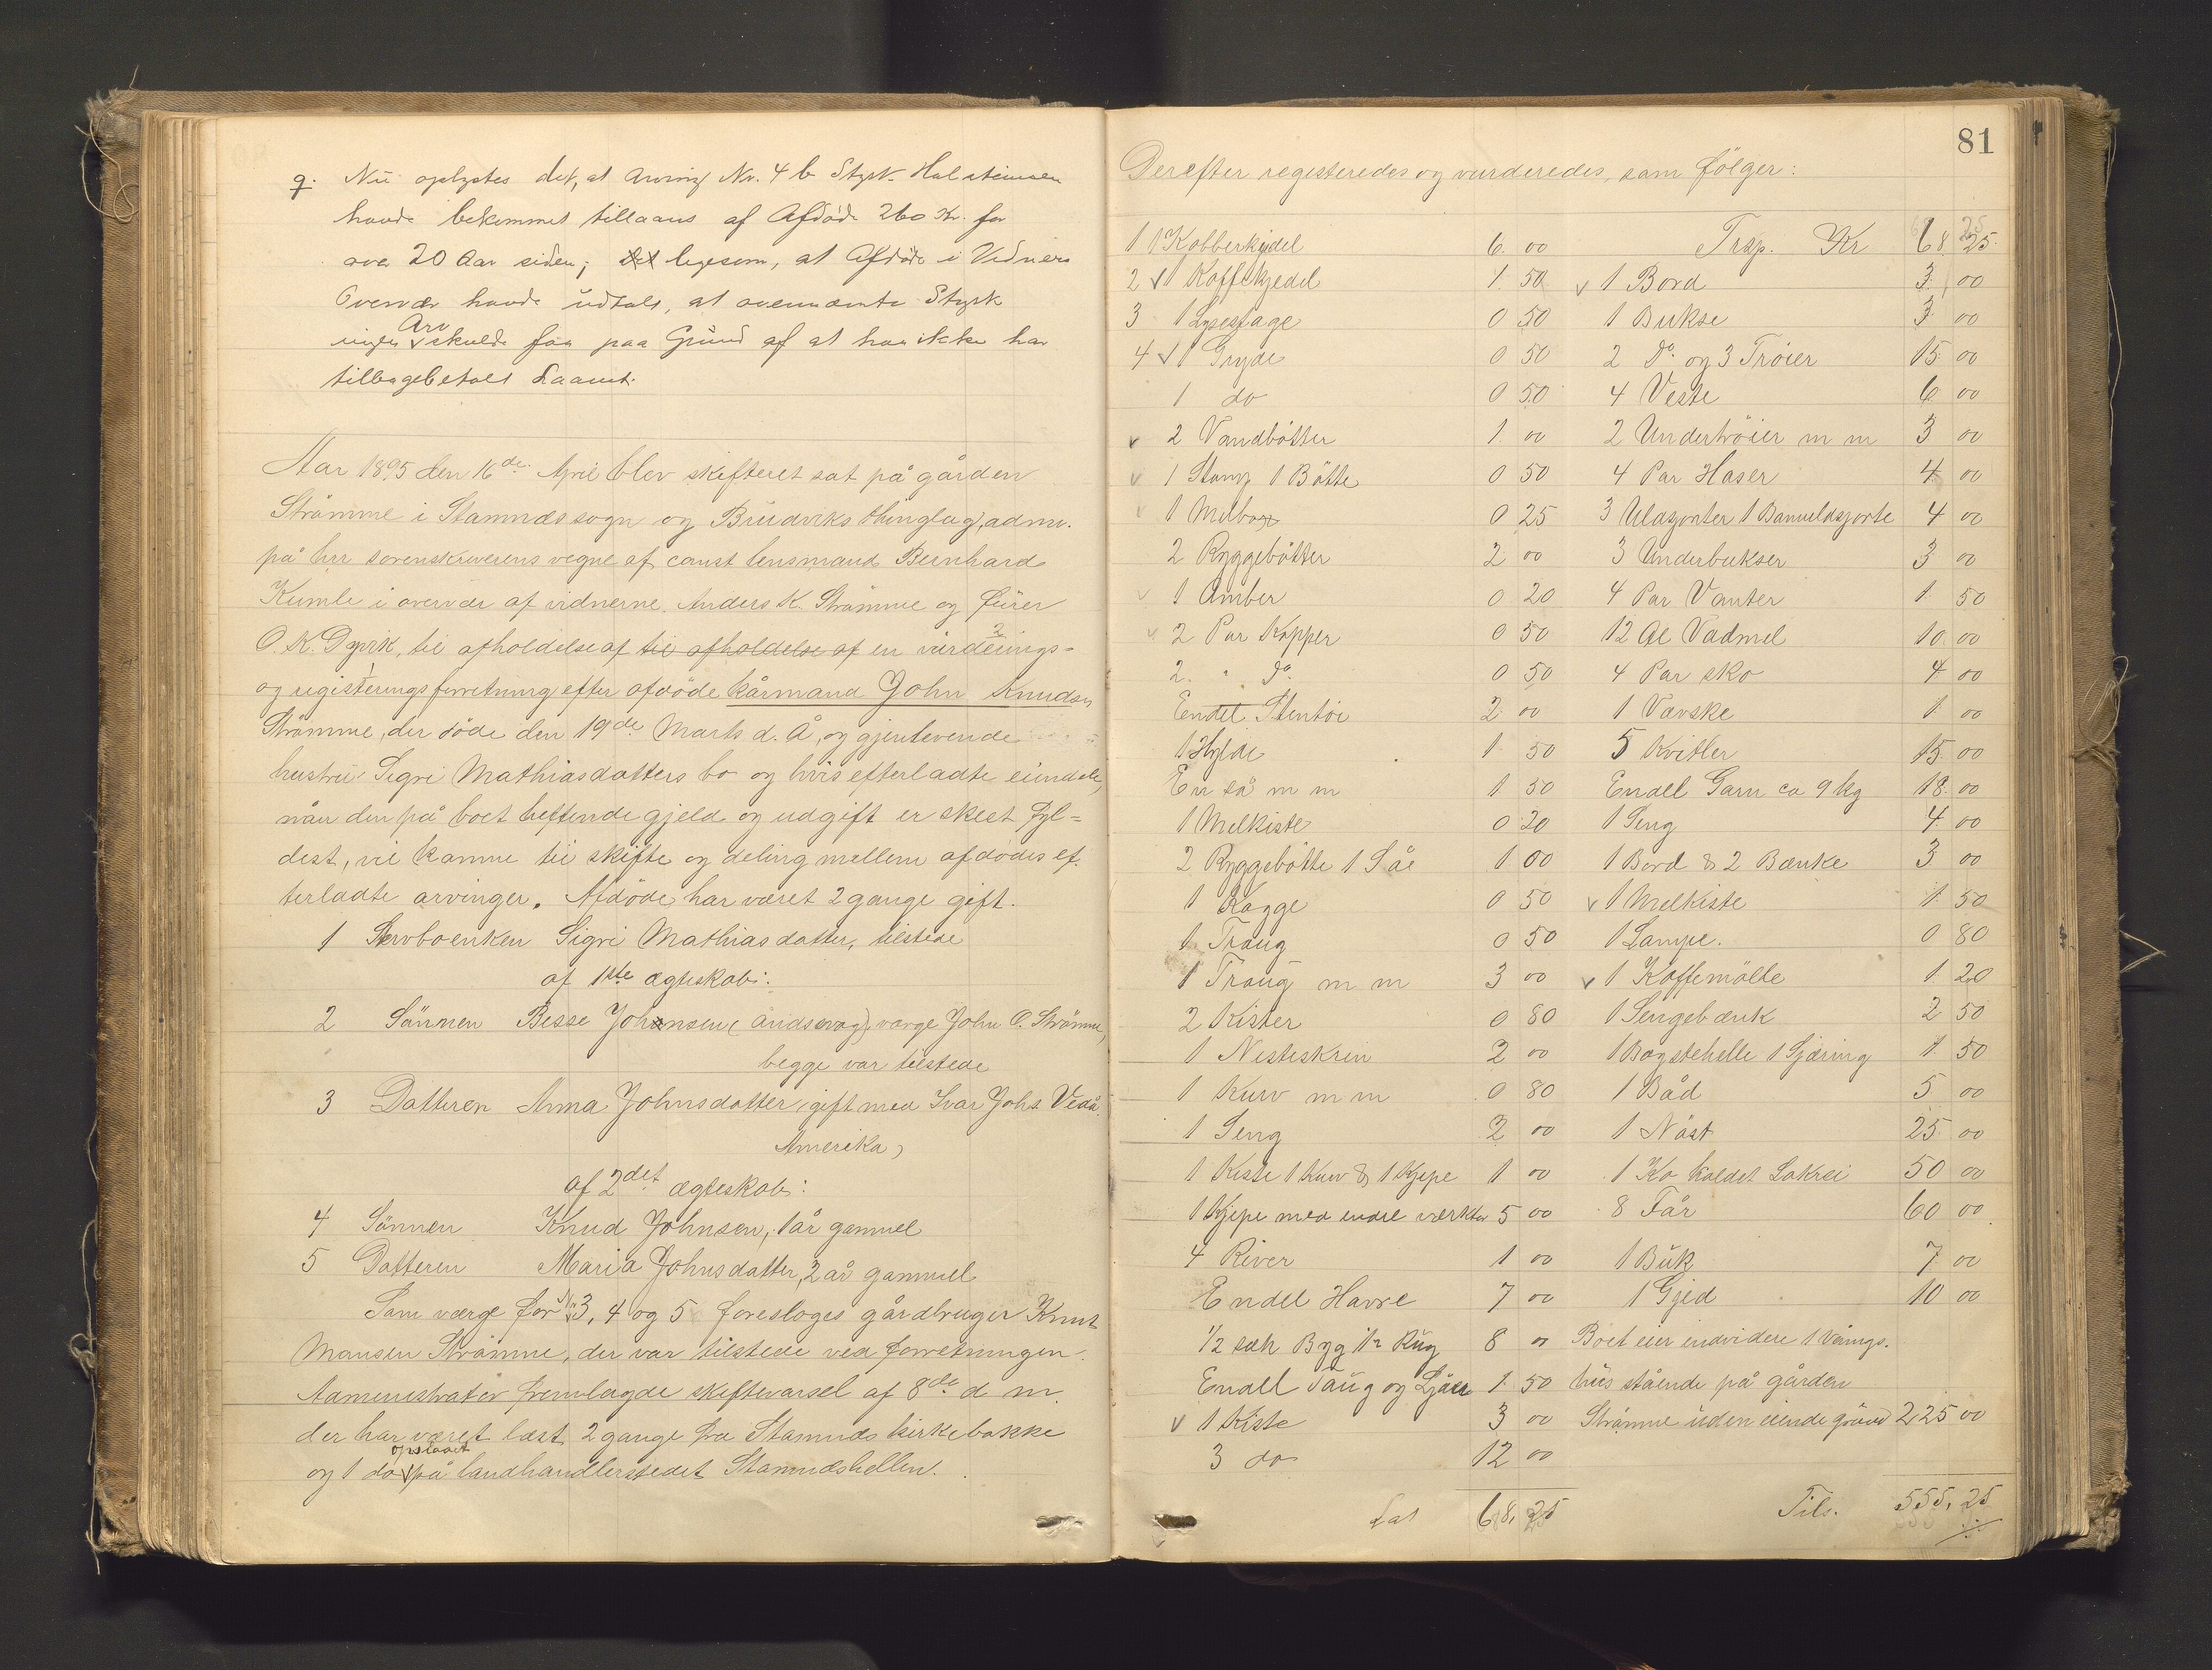 g. Nu oplystes det, at Arving Nr. 4 b Styrk Halsteinsen
havde bekommet tillaans af Afdøde 260 Kr. for
over 20 Aar siden; ligesom, at Afdøde i Vidners
Overvær havde udtalt, at ovennævnte Styrk
ingen Arv skulde faa paa Grund af at han ikke har
tilbagebetalt Laanet.
Aar 1895 den 16de April blev skifteret sat på gården
Strømme i Stamnes sogn og Bruviks thinglag, adm.
på hrr sorenskriverens vegne af const lensmand Bernhard
Kumle i overvær af vidnerne Anders K. Strømme og fører
O. K. Dyvik, til afholdelse af til afholdelse af en vurderings-
og registeringsforretning efter afdøde kårmand John Knudsen
Strømme, der døde den 19de Marts d. Å, og gjenlevende
hustru Sigri Mathiasdatters bo og hvis efterladte eiendele,
når den på boet heftende gjeld og udgift er skeet fyl-
dest, vil komme til skifte og deling mellem afdødes ef-
terladte arvinger. Afdøde har været 2 gange gift.
1 Stervboenken Sigri Mathiasdatter, tilstede
af 1ste ægteskab:
2 Sønnen Besse Johnsen (åndssvag), værge John O. Strømme,
begge var tilstede
3 Datteren Anna Johnsdatter, gift med Ivar Johs. Vedå
Amerika,
af 2det ægteskab:
4 Sønnen Knud Johnsen, 1 år gammel
5 Datteren Maria Johnsdatter, 2 år gammel
Som værge for No 3, 4 og 5 foresloges gårdbruger Knut
Monsen Strømme, der var tilstede ved forretningen.
Administrator fremlagde skiftevarsel af 8de d m.
der har været læst 2 gange fra Stamnes kirkebakke
og 1 do opslaaet på landhandlerstedet Stamneshellen.
81
Derefter registeredes og vurderedes, som følger:
1 1 Kobberkjedel 6. 00
2 v 1 Kaffekjedel 1. 50
3 1 Lysestage 0 50
4 v 1 Gryde 0 50
1 do 0 50
v 2 Vandbøtter 1. 00
v 1 Stamp 1 Bøtte 0 50
v 1 Melbøye 0 25
2 Ryggebøtter 2 00
v 1 Amber 0 20
v 2 Par Kopper 0 50
2. " Do. 0 50
Endel Stentøi 2 00
1 Hylde 1 50
En så m m 1 50
1 Melkiste 0 20
2 Ryggebøtte 1 Såe 1 00
1 Kagge 0 50
1 Traug 0 50
1 Traug m m 3 00
2 Kister 0 80
1 Nisteskrin 2 00
1 Kurv m m 0 80
1 Seng 2 00
1 Kiste 1 Kurv & 1 Kjepe 1 00
1 Kjepe med endel værktøi 5 00
4 River 1 00
Endel Havre 7 00
1/2 sæk Byg 1/2 Rug 8 00
Endel Taug og Ljåer 1. 50
v 1 Kiste 3 00
3 do 12 00
Lat 68, 25
Trsp. Kr 68 25
v 1 Bord 3. 00
1 Bukse 3 00
2 Do. og 3 Trøier 15 00
4 Veste 6 00
2 Undertrøier m m 3 00
4 Par Hoser 4 00
3 Uldsjorter 1 Bomuldsjorte 4 00
3 Underbukser 3 00
4 Par Vanter 1 50
12 Al Vadmel 10. 00
4 Par sko 4 00
1 Vævske 1 00
5 Kvitler 15 00
Endel Garn ca 9 kg 18. 00
1 Seng 4 00
1 Bord & 2 Bænke 3 00
v 1 Melkiste 1. 50
1 Lampe. 0 80
v 1 Kaffemølle 1. 20
1 Sengebænk 2 50
1 Bagstehelle 1 Sjæring 1. 50
1 Båd 5 00
1 Nøst 25 00
1 Ko kaldet Lokrei 50 00
8 Får 60 00
1 Buk 7 00
1 Gjed 10 00
Boet eier endvidere 1 vånings-
hus stående på gården
Strømme uden eiende grund 225 00
Tils. 555, 25